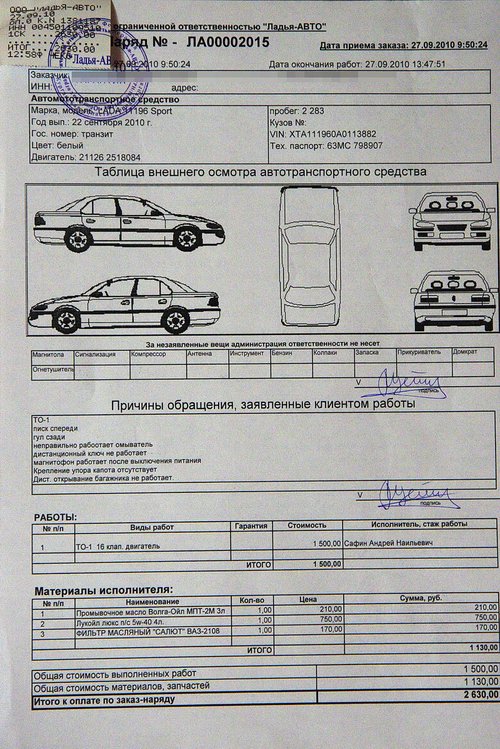 ООО "ЛАДЬЯ-АВТО"
27.09.10
ограниченной ответственностью "Ладья-АВТО"
ИТОГ
12:58
Ладья-АВ
Наряд № - ЛА00002015
Дата приема заказа: 27.09.2010 9:50:24
27.09.2010 9:50:24
Дата окончания работ: 27.09.2010 13:47:51
Заказчик
ИНН:
адрес:
Автомототранспортное средство
Марка, модель: LADA 11196 Sport
пробег: 2 283
Год вып.: 22 сентября 2010 г.
Кузов №:
Гос. номер: транзит
VIN: XTA111960A0113882
Цвет: белый
Тех. паспорт: 63МС 798907
Двигатель: 21126 2518084
Таблица внешнего осмотра автотранспортного средства
За незаявленные вещи администрация ответственности не несет
Магнитола Сигнализация Компрессор Антенна Инструмент Бензин Колпаки Запаска Прикуриватель Домкрат
Огнетушитель
V
подпись
Причины обращения, заявленные клиентом работы
ТО-1
писк спереди
гул сзади
неправильно рабоотает омыватель
дистанционный ключ не работает
магнитофон работает после выключения питания
Крепление упора капота отсутствует
Дист. открывание багажника не работает.
V
подпись
РАБОТЫ:
№ п/п Виды работ Гарантия Стоимость Исполнитель, стаж работы
1 ТО-1 16 клап. двигатель 1 500,00 Сафин Андрей Наильевич
ИТОГО 1 500,00
Материалы исполнителя:
№ п/п Наименование Кол-во Цена Сумма, руб.
1 Промывочное масло Волга-Ойл МПТ-2М 3л 1,00 210,00 210,00
2 Лукойл люкс п/с 5w-40 4л. 1,00 750,00 750,00
3 ФИЛЬТР МАСЛЯНЫЙ "САЛЮТ" ВАЗ-2108 1,00 170,00 170,00
ИТОГО 1 130,00
Общая стоимость выполненных работ 1 500,00
Общая стоимость материалов, запчастей 1 130,00
Итого к оплате по заказ-наряду 2 630,00